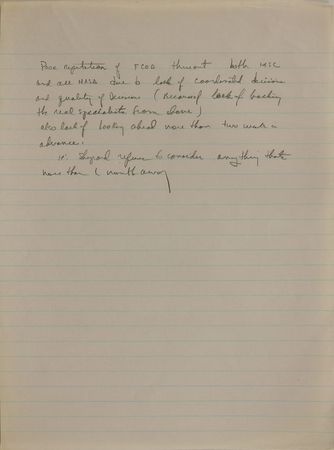 Poor reputation of FCOD thruout both MSC
and all NASA due to lack of coordinated decisions
and quality of decisions (because of lack of backing
the real specialists from above)
also lack of looking ahead more than two weeks in
advance.
ie. Shepard refuses to consider anything thats
more than 1 month away